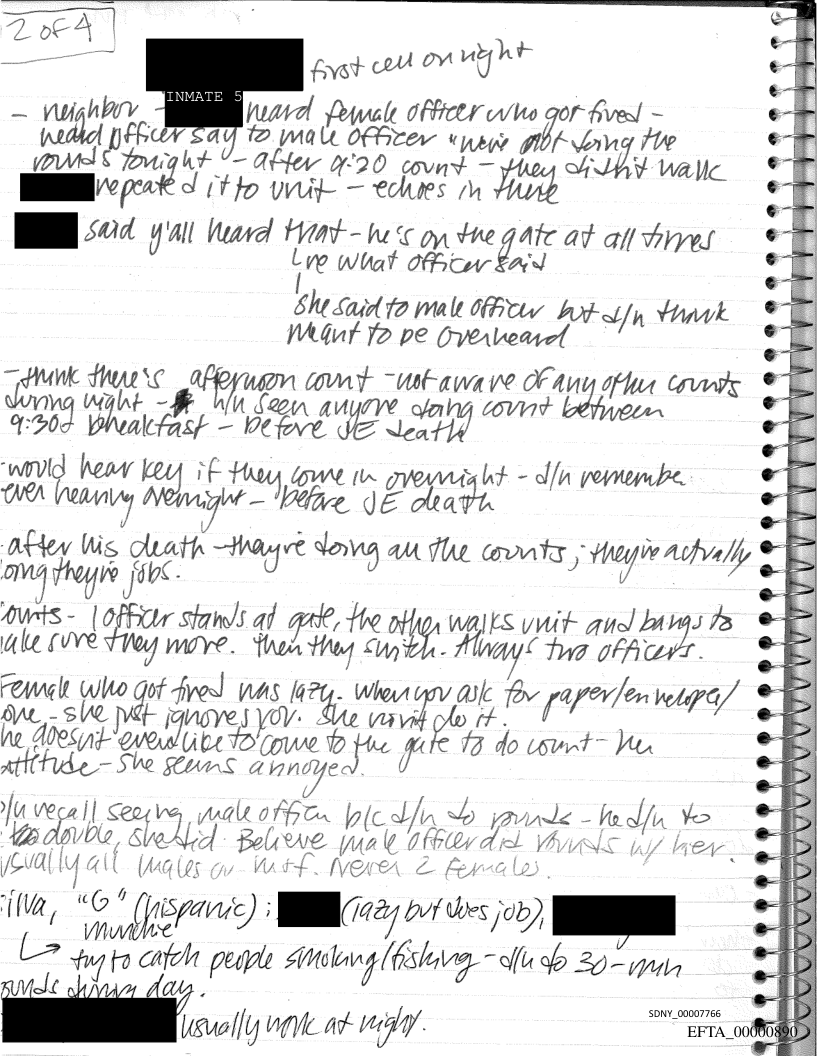 2 of 4
first cell on right
INMATE 5
- neighbor - heard female officer who got fired -
heard officer say to male officer "we're not doing the
rounds tonight - after 9:20 count - they didn't walk
repeated it to unit - echoes in there
said y'all heard that - he's on the gate at all times
re what officer said
she said to male officer but d/n think
meant to be overheard
- think there's afternoon count - not aware of any other counts
during night - h/n seen anyone doing count between
9:30 & breakfast - before JE death
- would hear key if they come in overnight - d/n remember
ever hearing overnight - before JE death
- after his death - they're doing all the counts; they're actually
oing they're jobs.
ounts - 1 officer stands at gate, the other walks unit and bangs to
ake sure they move. Then they switch. Always two officers.
Female who got fired was lazy. When you ask for paper/envelope/
one - she just ignores you. She won't do it.
he doesn't even like to come to the gate to do count - her
attitude - she seems annoyed.
d/n recall seeing male officer b/c d/n do rounds - he d/n do
double, she did. Believe male officer did rounds w/ her.
usually all males or m+f. Never 2 females.
ilva, "G" (hispanic); (lazy but does job),
try to catch people smoking/fishing - d/n do 30-min
ounds during day.
usually work at night.
SDNY_00007766
EFTA_00000890